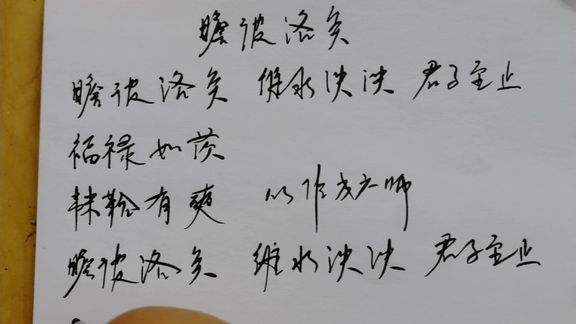 瞻彼洛矣
瞻彼洛矣 维水泱泱 君子至止
福禄如茨
韎韐有奭 以作六师
瞻彼洛矣 维水泱泱 君子至止